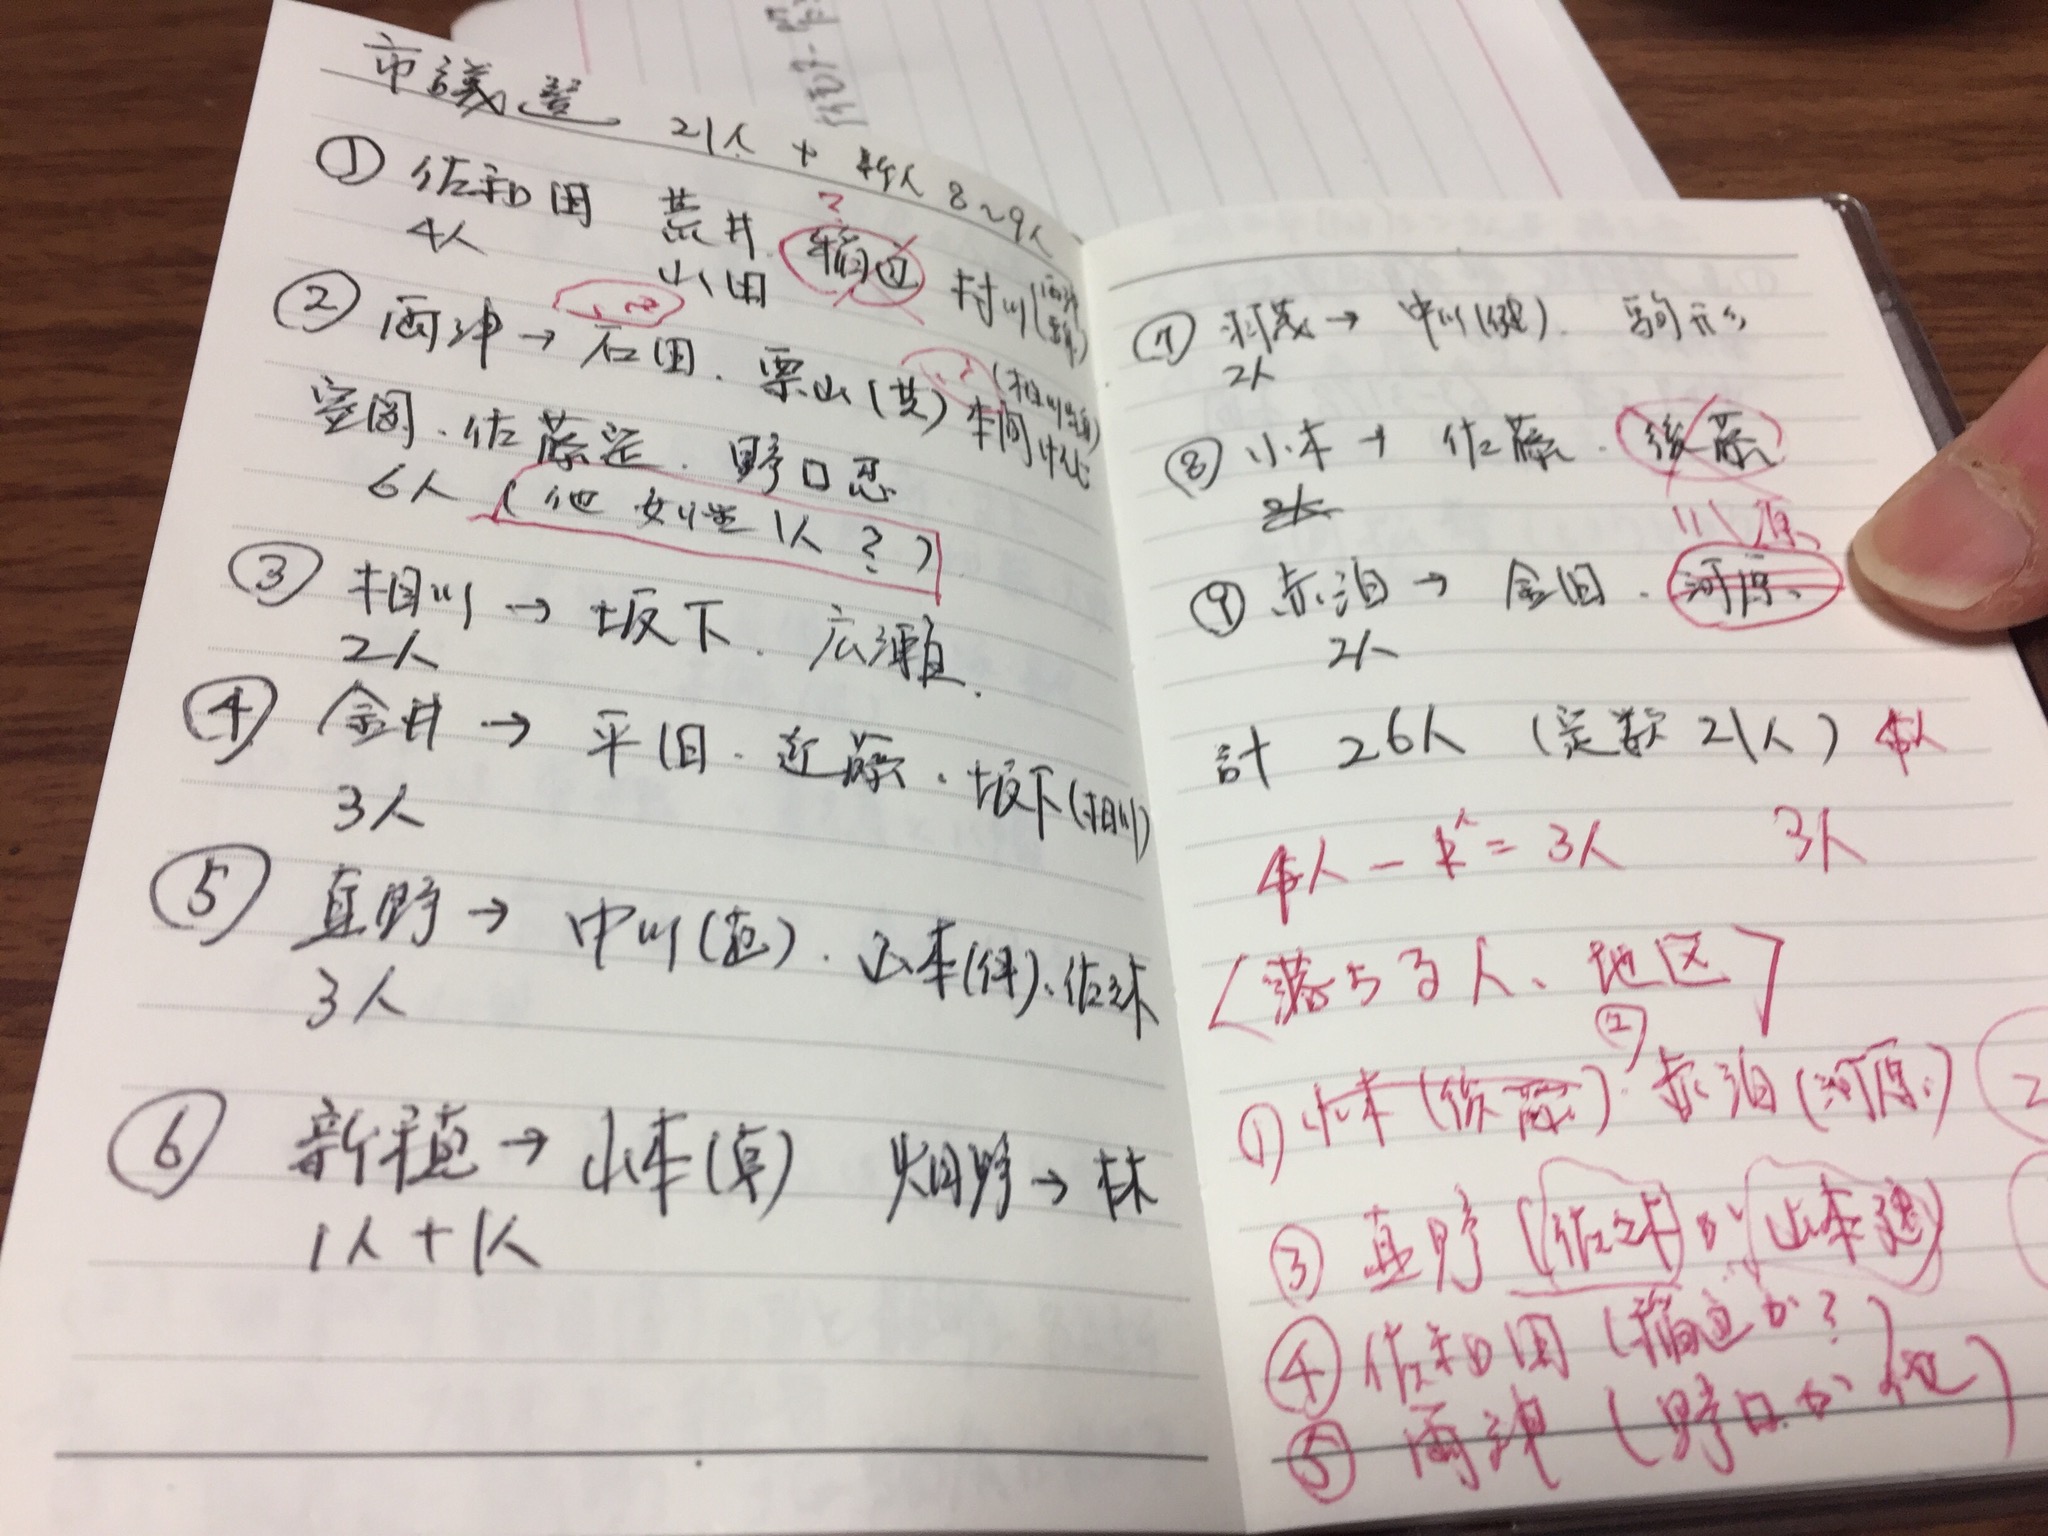 市議選 21人 + 新人 8〜9人
① 佐和田 荒井 稲辺 ?
4人 山田 村川
② 両津→ 石田.栗山( )本間
空岡.佐藤定.野口忍
6人 (他 女性1人?)
③ 相川→ 坂下.広瀬.
2人
④ 金井→ 平田.近藤.坂下(相川)
3人
⑤ 真野→ 中川( ).山本(伊).佐々木
3人
⑥ 新穂→山本(卓) 畑野→林
1人+1人
⑦ 羽茂→ 中川(健).駒形
2人
⑧ 小木→ 佐藤.後藤
2人
⑨ 赤泊→ 金田.河原
2人
計 26人 (定数 21人)
= 3人 3人
〈落ちる人、地区〉
①小木(後藤).②赤泊(河原)
③ 真野(佐々木)か(山本 )
④ 佐和田(稲辺か?)
⑤ 両津(野口か他)